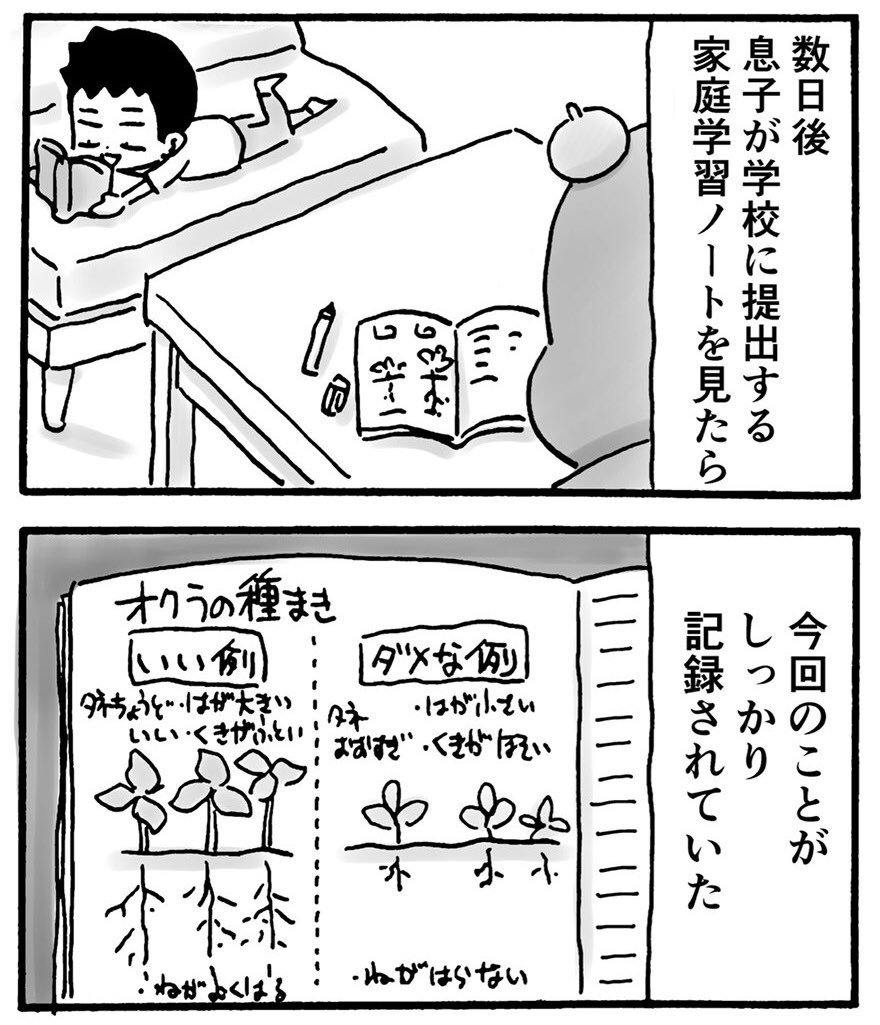 数日後
息子が学校に提出する
家庭学習ノートを見たら
今回のことが
しっかり
記録されていた
オクラの種まき
いい例
タネちょうど
いい
・はが大きい
・くきがふとい
・ねがよくはる
ダメな例
タネ
おおすぎ
・はが小さい
・くきがほそい
・ねがはらない